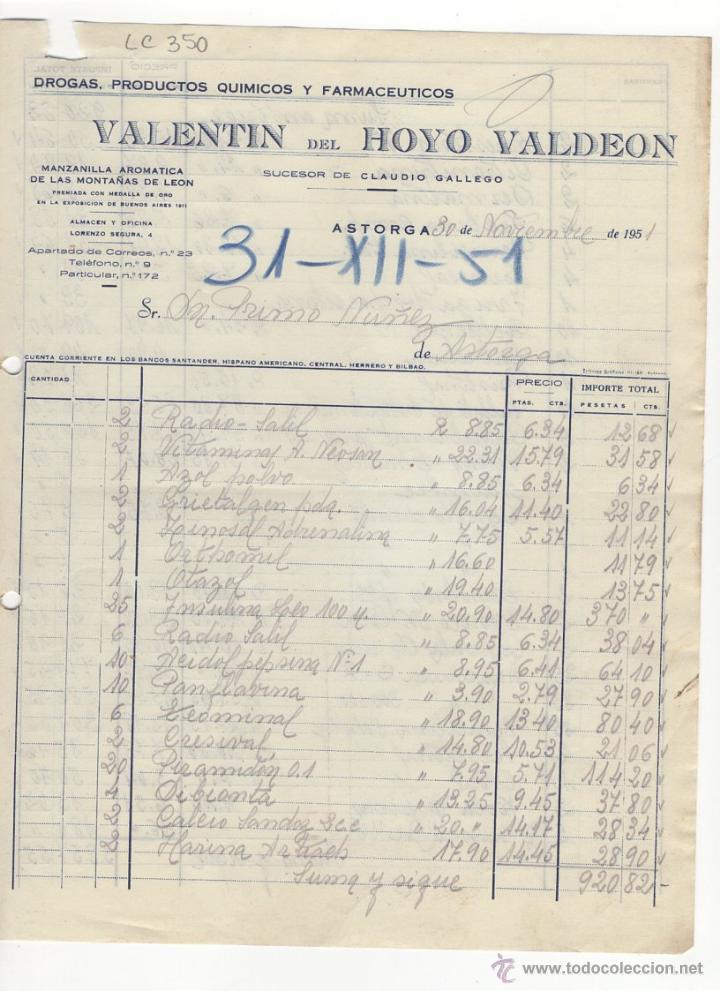 LC 350
DROGAS, PRODUCTOS QUIMICOS Y FARMACEUTICOS
VALENTIN DEL HOYO VALDEON
MANZANILLA AROMATICA
DE LAS MONTAÑAS DE LEON
SUCESOR DE CLAUDIO GALLEGO
PREMIADA CON MEDALLA DE ORO
EN LA EXPOSICION DE BUENOS AIRES 1911
ALMACEN Y OFICINA
LORENZO SEGURA, 4
ASTORGA 30 de Noviembre de 1951
Apartado de Correos, n.º 23
Teléfono, n.º 9
Particular, n.º 172
31-XII-51
Sr. Dn. Primo Nuñez
de Astorga
CUENTA CORRIENTE EN LOS BANCOS SANTANDER, HISPANO AMERICANO, CENTRAL, HERRERO Y BILBAO.
CANTIDAD PRECIO IMPORTE TOTAL
PTAS. CTS. PESETAS CTS.
2 Radio-Salil 8.85 6.34 12 68
2 Vitaminas A. Neosan " 22.31 15.79 31 58
1 Azol polvo " 8.85 6.34 6 34
2 Grietalgen pda. " 16.04 11.40 22 80
2 Adrenalina " 7.75 5.57 11 14
1 " 16.60 11 79
1 Otazol " 19.40 13 75
25 Insulina Leo 100 u. " 20.90 14.80 370 "
6 Radio Salil " 8.85 6.34 38 04
10 Acidol pepsina Nº 1 " 8.95 6.41 64 10
10 Panflavina " 3.90 2.79 27 90
6 " 18.90 13.40 80 40
2 Cresival " 14.80 10.53 21 06
20 Piramidón 0.1 " 7.95 5.71 114 20
4 " 13.25 9.45 37 80
2 Calcio Sandoz " 20. " 14.17 28 34
2 Harina 17.90 14.45 28 90
Suma y sigue 920 82
www.todocoleccion.net